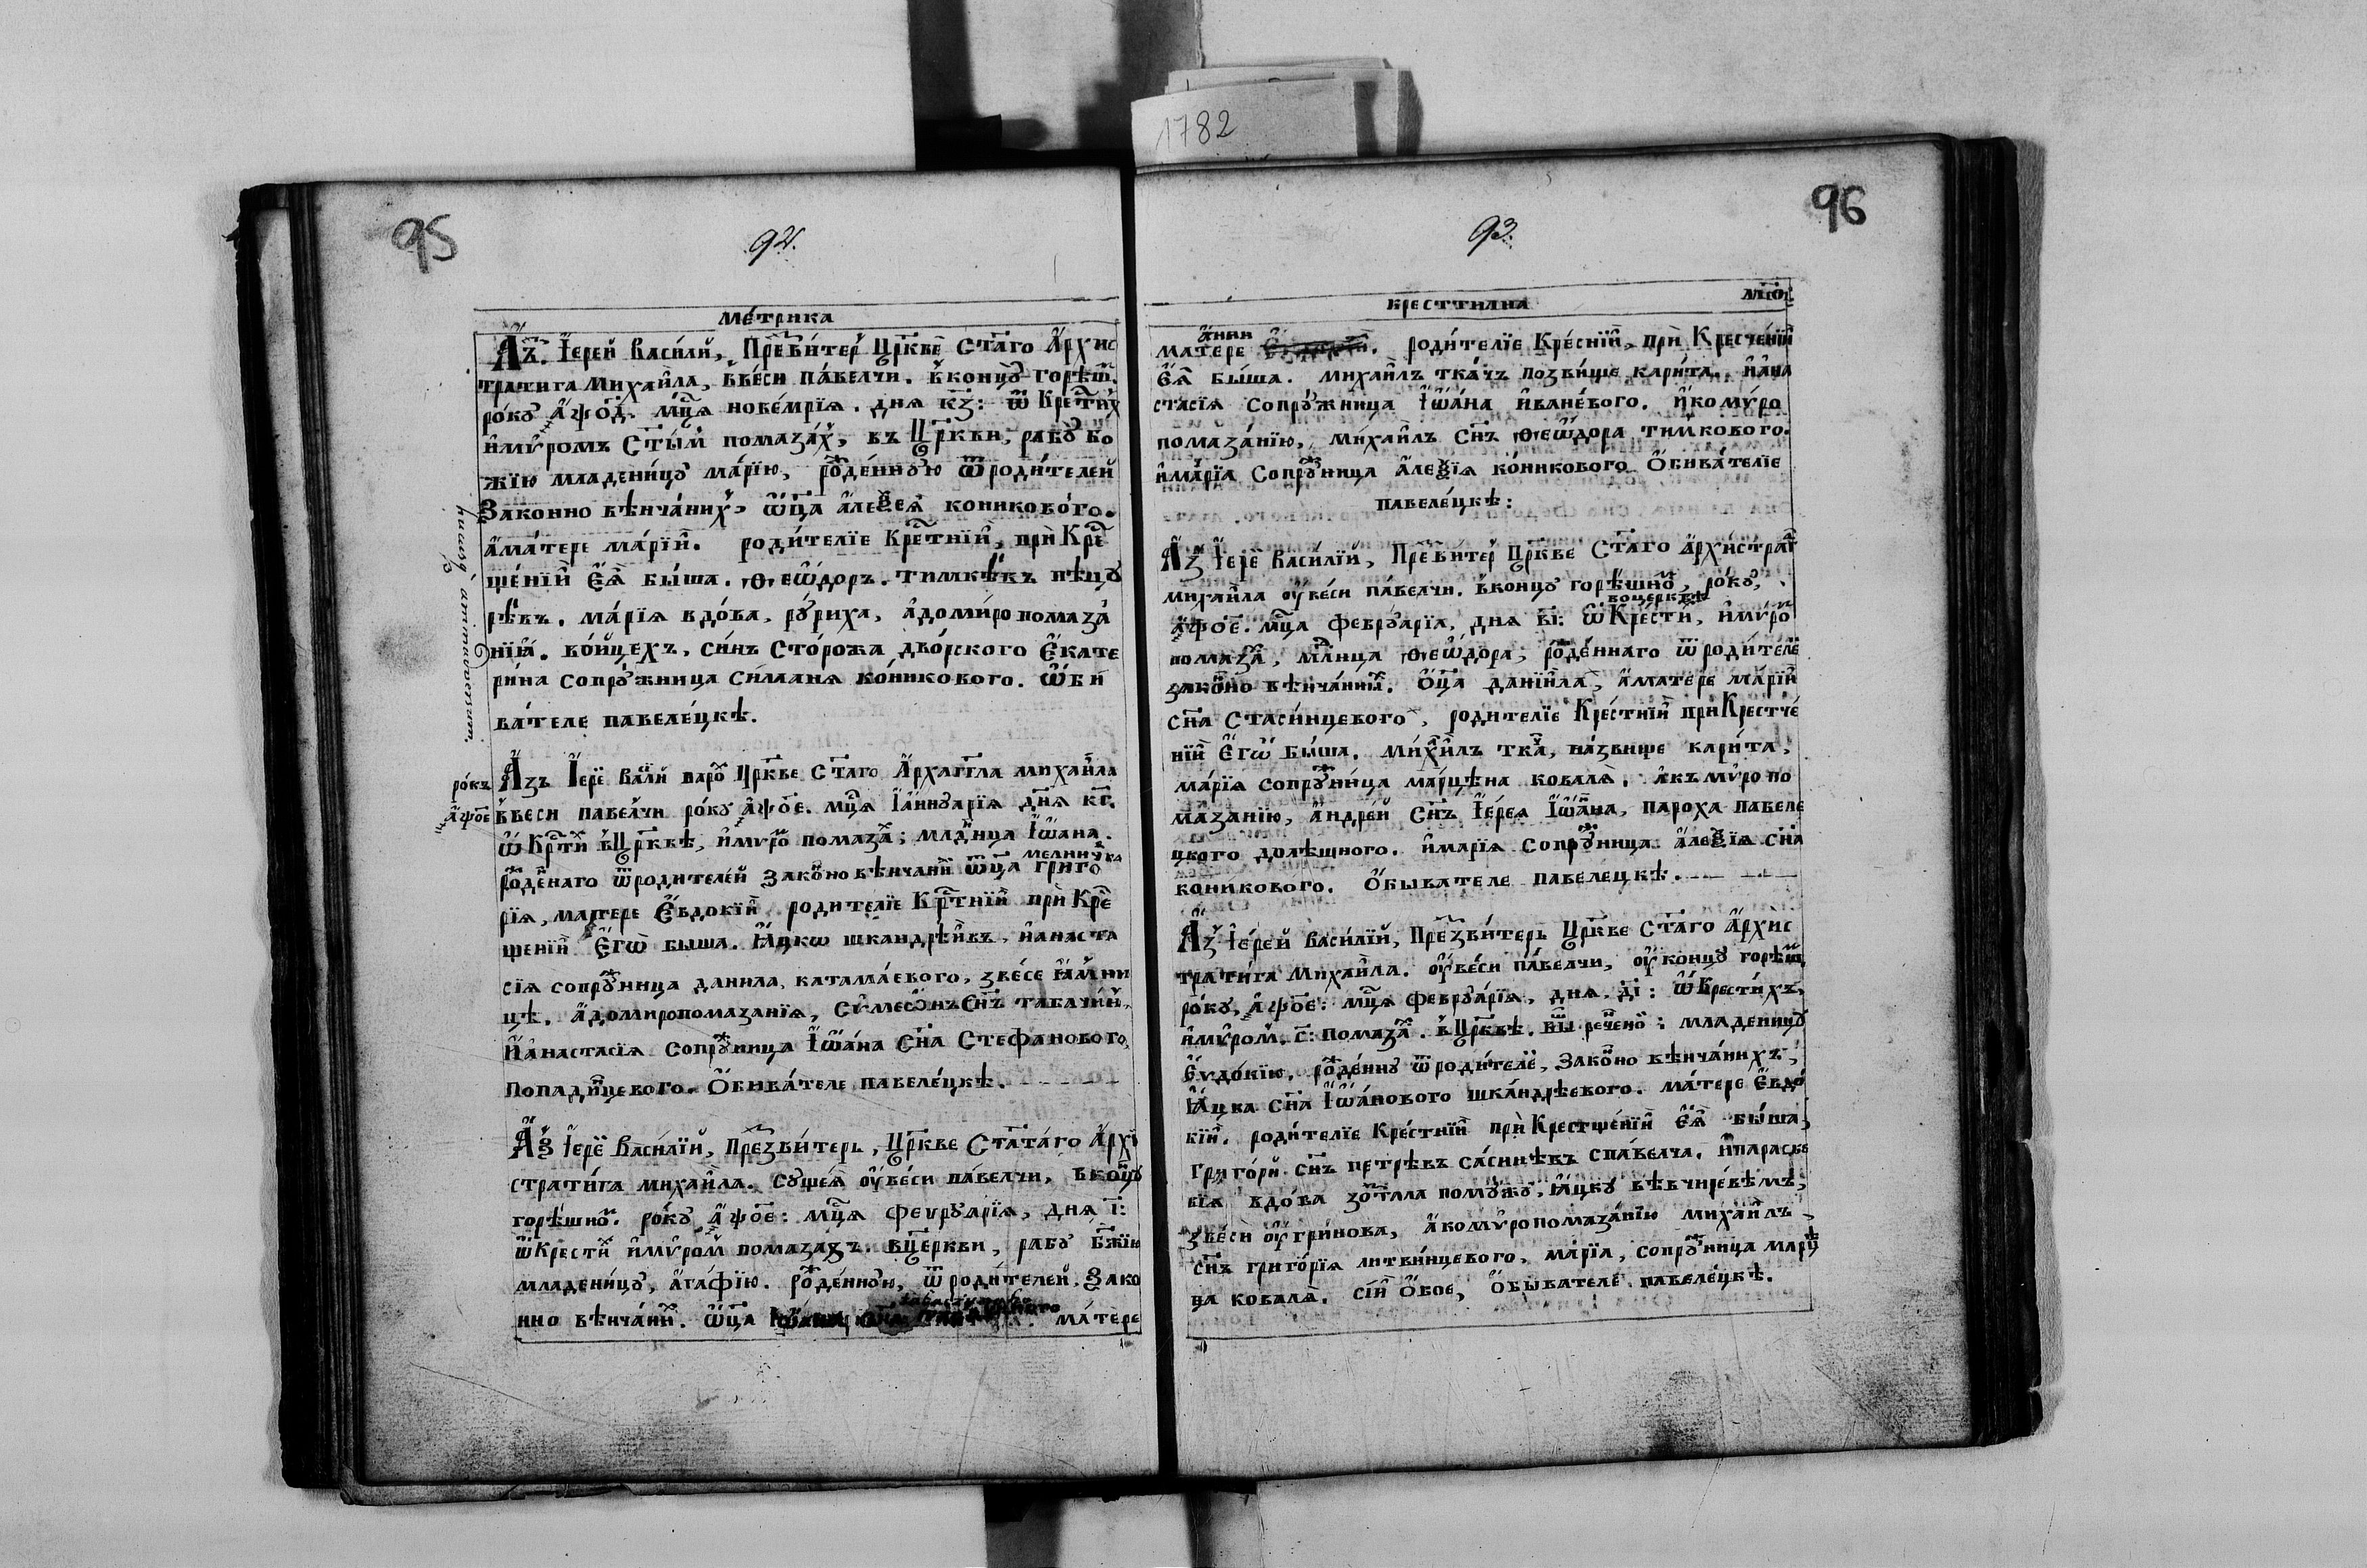 1782
95
92.
Метрика
Азъ. Іерей Василй, Превитер Црквѣ Стаго Архис
тратига Михаила, ввеси павелчи. вконцꙋ горѣш.
рокꙋ ҂аѱод. мцѧ новемрїѧ. днѧ кз: ѿ Кретих
имѵромъ Стым помазах, въ Цркви, рабꙋ бо
жїю младеницꙋ марїю, рожденнꙋю ѿродителей
Законно вѣнчаних, ѿца алеѯеѧ коникового.
аматере марїи. родителїе Кретнїи, при Кре
щенїи еѧ быша. ѳеѡдоръ. тимкѣвъ пѣцꙋ
рѣвъ. марїѧ вдова, рꙋриха, адомиро помаза
нїѧ. войцехъ, синъ Сторожа дворского Екате
рина сопрꙋжница симанѧ коникового. Ѡби
вателе павелецкѣ.
hucusq. animadversum.
рокъ
҂аѱое
Азъ Іере вали паро Цркве Стаго Архаггла михаила
ввеси павелчи рокꙋ ҂аѱое. мцѧ Іаннꙋарїѧ днѧ кг.
ѿ Крти вЦрквѣ, имѵро помаза; младнца Іѡана.
рожденаго ѿродителей законо вѣнчани ѿца григо
мелничка
рїѧ, матере Евдокїи родителїе Кртнїи при Кре
щенїи Егѡ быша. Іацкѡ шкандрѣивъ, инаста
сїѧ сопрꙋжница данила, катамаевого, звесе Іамни
цѣ. адомиропомазанїѧ, Сѵмеонъ Снъ табачин,
Ианастасїѧ сопрꙋжница Іѡана Сна Стефанового
Попадинцевого. Обивателе павелецкѣ.
Аз Іере Василїй, Презвитеръ, Цркве Статаго Архї
стратига михаила. сꙋщеѧ оувеси павелчи, вконцꙋ
горѣшно. рокꙋ ҂аѱое: мцѧ феврꙋарїѧ, днѧ і:
ѿкрести имѵром помазахъ. вЦеркви, рабꙋ Бжїю
младеницꙋ, агафїю. рожденнꙋю, ѿ родителей, Зако
нно вѣнчани. ѿца матере
96
93.
крестилна
анни
матере родителїе Креснїи, при Кресченїи
еѧ быша. михаилъ ткачъ позвище карита. иана
стасїѧ сопрꙋжница Іѡана иваневого. икомѵро
помазанїю, михаилъ Снъ ѳеѡдора тимкового.
имарїѧ Сопрꙋжница алеѯїѧ коникового Обивателїе
павелецкѣ:
Аз Іере Василїй, Превитер Цркве Стаго архистраг
михаила оувеси павелчи. вконцꙋ горѣшно, рокꙋ,
вцерквѣ
҂аѱое. мца феврꙋарїа, днѧ ві: ѿКрести, имѵро
помаза, млнца ѳеѡдора, рожденнаго ѿродителе
законо вѣнчанни. Оца данїила, аматере марїи
сна Стасинцевого, родителїе Крестнїи приКрестче
нїи Егѡ быша. михаилъ тка, назвище карита,
марїѧ сопрꙋжница марцѣна ковалѧ. акъ мѵро по
мазанїю, андрей Снъ Іереѧ Іѡана, пароха павеле
цкого долѣшного. имарїѧ сопрꙋжница алеѯїѧ сна
коникового. Обывателе павелецкѣ.
Аз Іерей Василїй, Презвитеръ Цркве Стаго Архис
тратига Михаила. оувеси павелчи, оуконцꙋ горѣш
рокꙋ, ҂аѱое: мцѧ феврꙋарїѧ, днѧ ді: ѿКрестихъ
имѵром. с: помаза. вЦрквѣ. вы реченно: младеницꙋ
Еѵдокїю, рожденнꙋ ѿродителе, Законо вѣнчанихъ,
Іацка сна Іѡанового шкандрѣевого. матере Евдо
кїи. родителїе Крестнїи при Крестщенїи еѧ быша,
григори снъ петрѣвъ сасинѣвъ спавелча. ипараске
вїѧ вдова зосталла помꙋжꙋ, Іацкꙋ вѣвчирѣвѣмъ,
звеси оугринова, акомѵропомазанїю михаилъ
снъ григорїѧ литвинцевого, марїа, сопрꙋжница марцѣ
на ковалѧ. сїи Обое, Обывателе павелецкѣ.